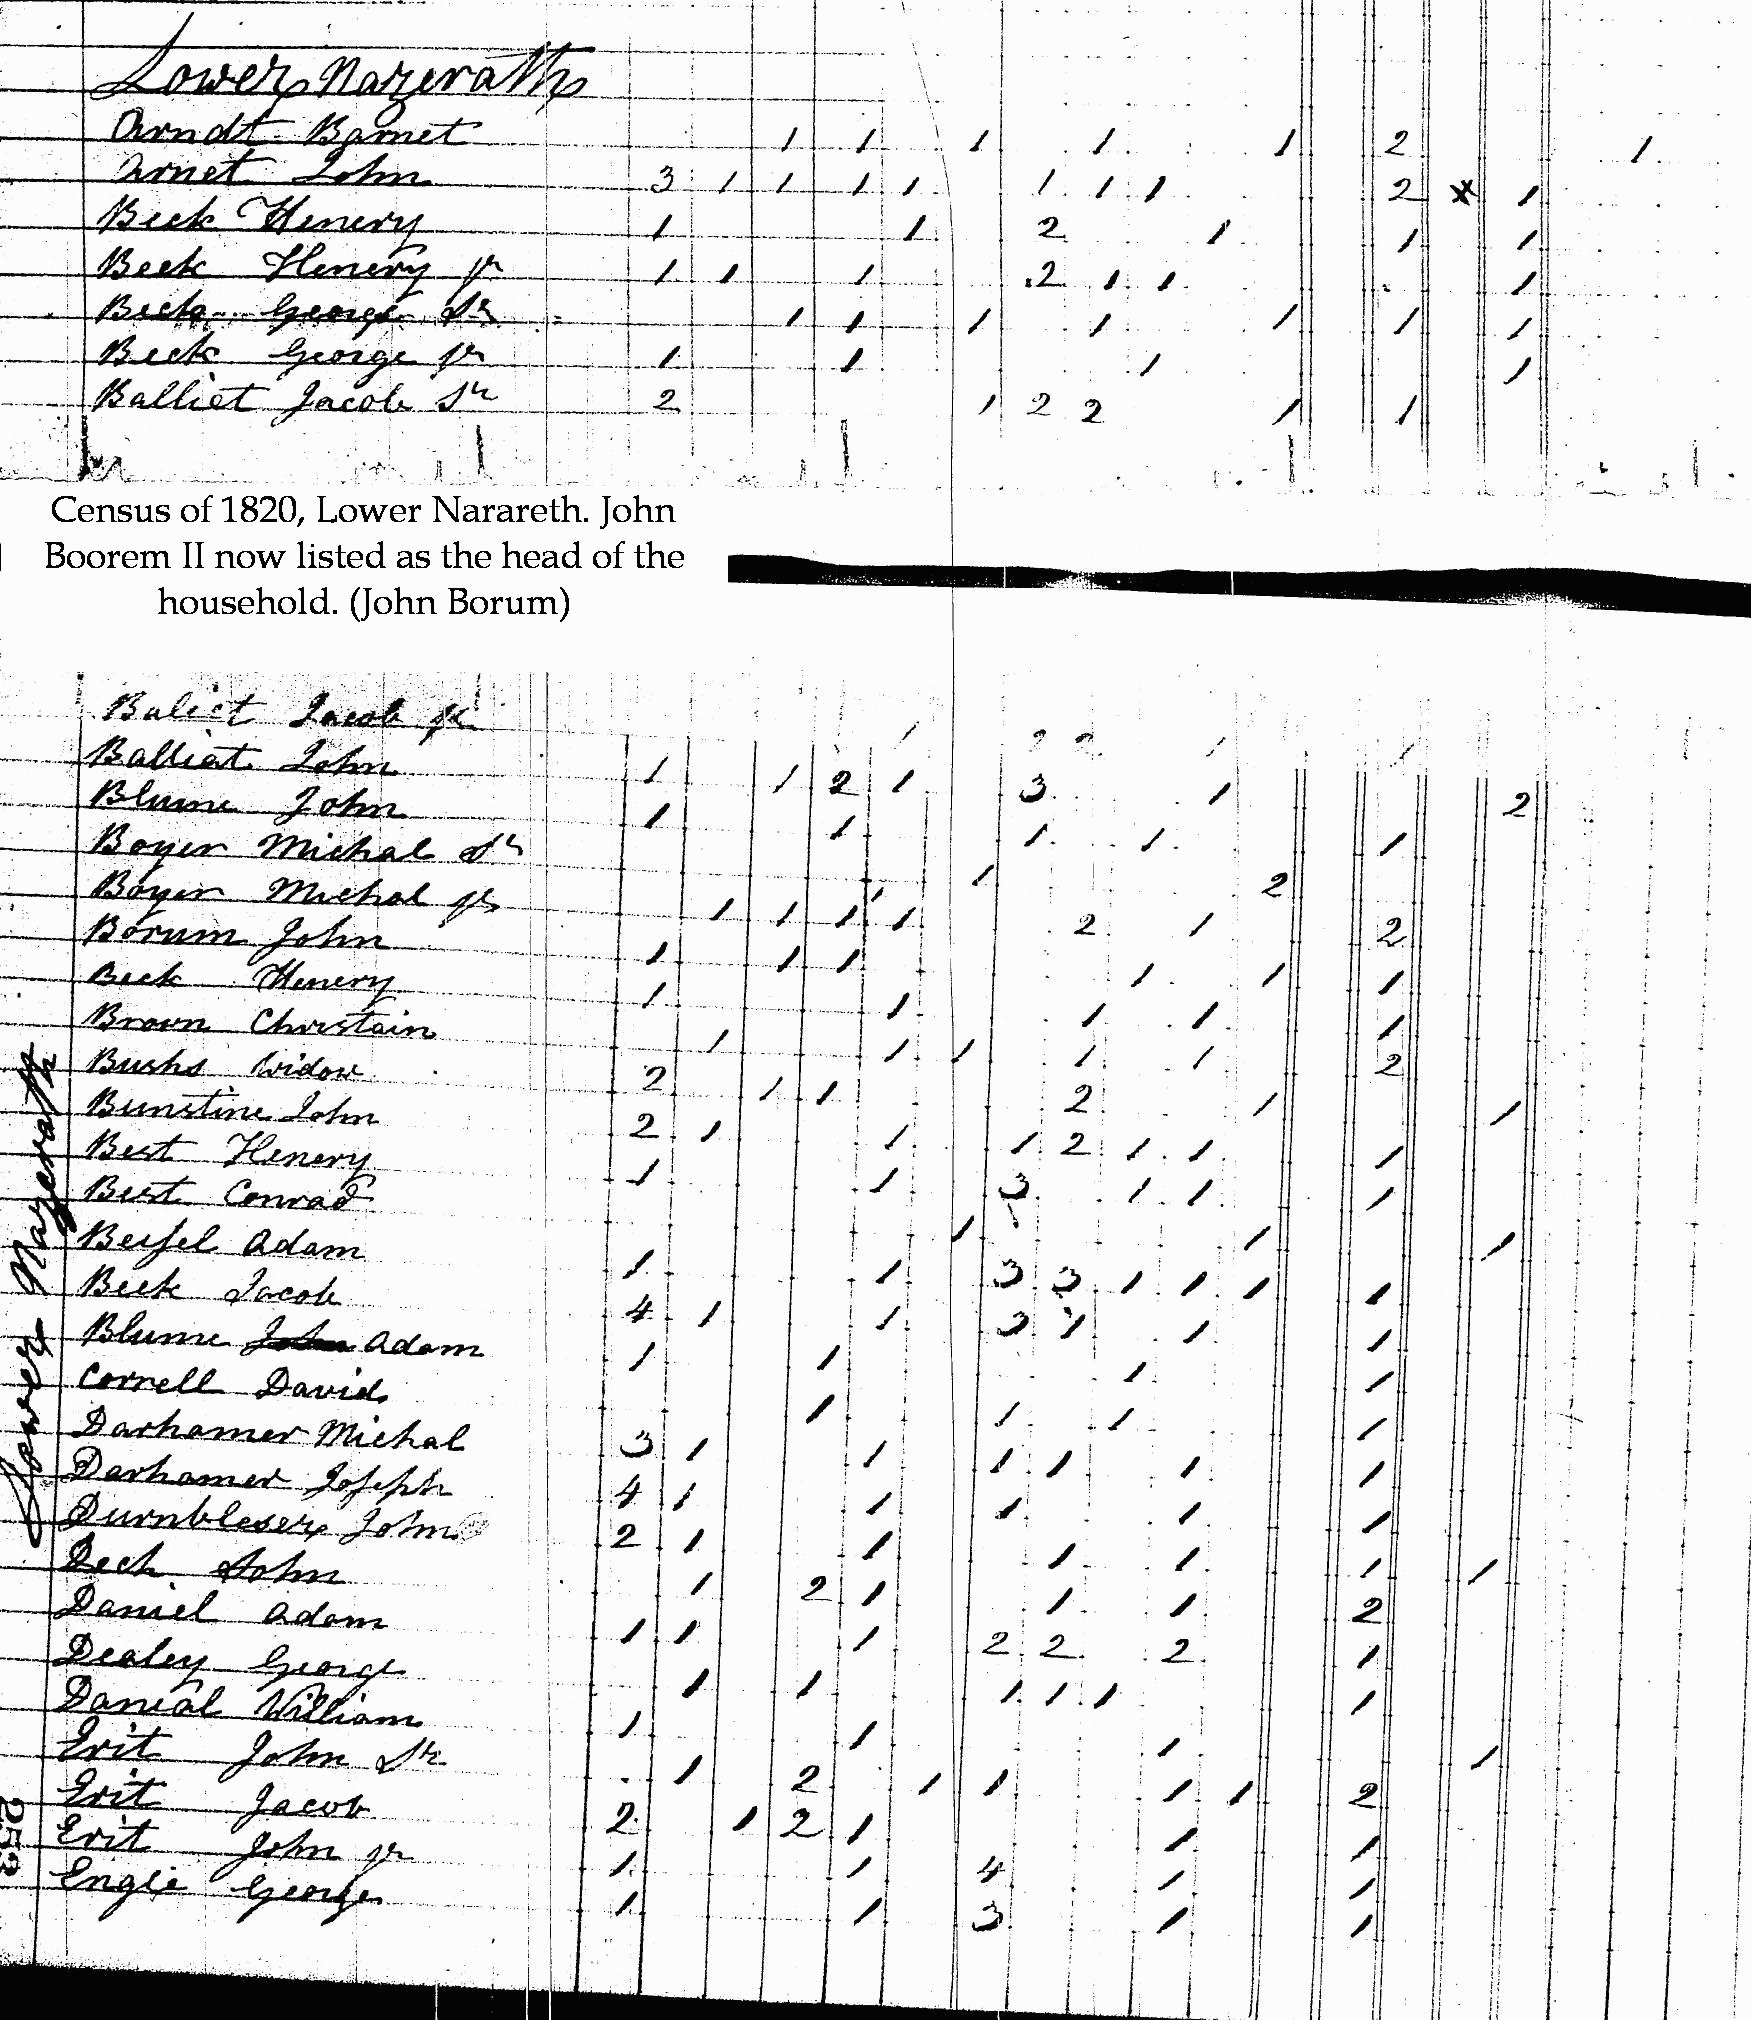 Lower Nazerath
Arndt Barnet 1 1 1 1 1 2 1
Arnet John 3 1 1 1 1 1 1 1 2 x 1
Beck Henery 1 1 2 1 1 1
Beck Henery jr 1 1 1 2 1 1 1
Beck George Sr 1 1 1 1 1 1 1
Beck George jr 1 1 1 1
Balliet Jacob Sr 2 1 2 2 1 1
Census of 1820, Lower Narareth. John
Boorem II now listed as the head of the
household. (John Borum)
Baliet Jacob jr 1 2 2 1 1
Balliat John 1 1 2 1 3 1 2
Blume John 1 1 1 1 1
Boyer Michal Sr 1 2
Boyer Michal jr 1 1 1 1 2 1 2
Borum John 1 1 1 1 1 1
Beck Henery 1 1 1 1 1
Brown Christain 1 1 1 1 1 2
Bushs Widow 2 1 1 2 1 1
Bunstine John 2 1 1 1 2 1 1 1
Best Henery 1 1 3 1 1 1
Best Conrad 1 1 1
Beisel Adam 1 1 3 3 1 1 1 1
Beck Jacob 4 1 1 3 1 1 1
Blume John Adam 1 1 1 1
Correll David 1 1 1 1
Darhamer Michal 3 1 1 1 1 1 1
Darhamer Joseph 4 1 1 1 1 1
Durnbleser John 2 1 1 1 1 1 1
Dech John 1 2 1 1 1 2
Daniel Adam 1 1 1 2 2 2 1
Dealey George 1 1 1 1 1 1
Danial William 1 1 1 1
Erit John Sr 1 2 1 1 1 1 2
Erit Jacob 2 1 2 1 1 1
Erit John jr 1 1 4 1 1
Engle George 1 1 3 1 1
Lower Nazerath